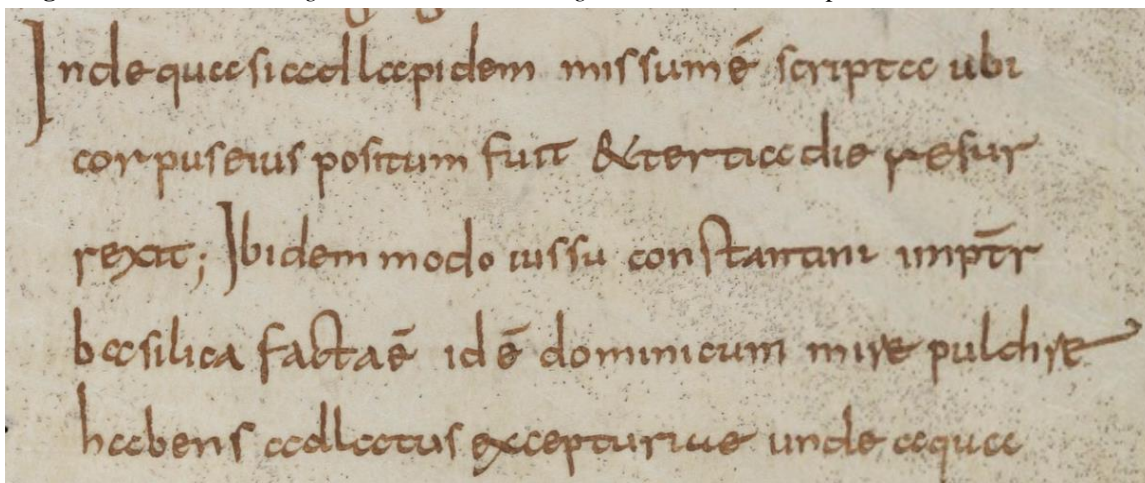 Inde quasi ad lapidem missum ē scripta ubi
corpus eius positum fuit & tertia die resur
rexit; Ibidem modo iussu constantini imp̄tr
basilica facta ē id ē dominicum mire pulchre
habens ad latus excepturiae unde aqua